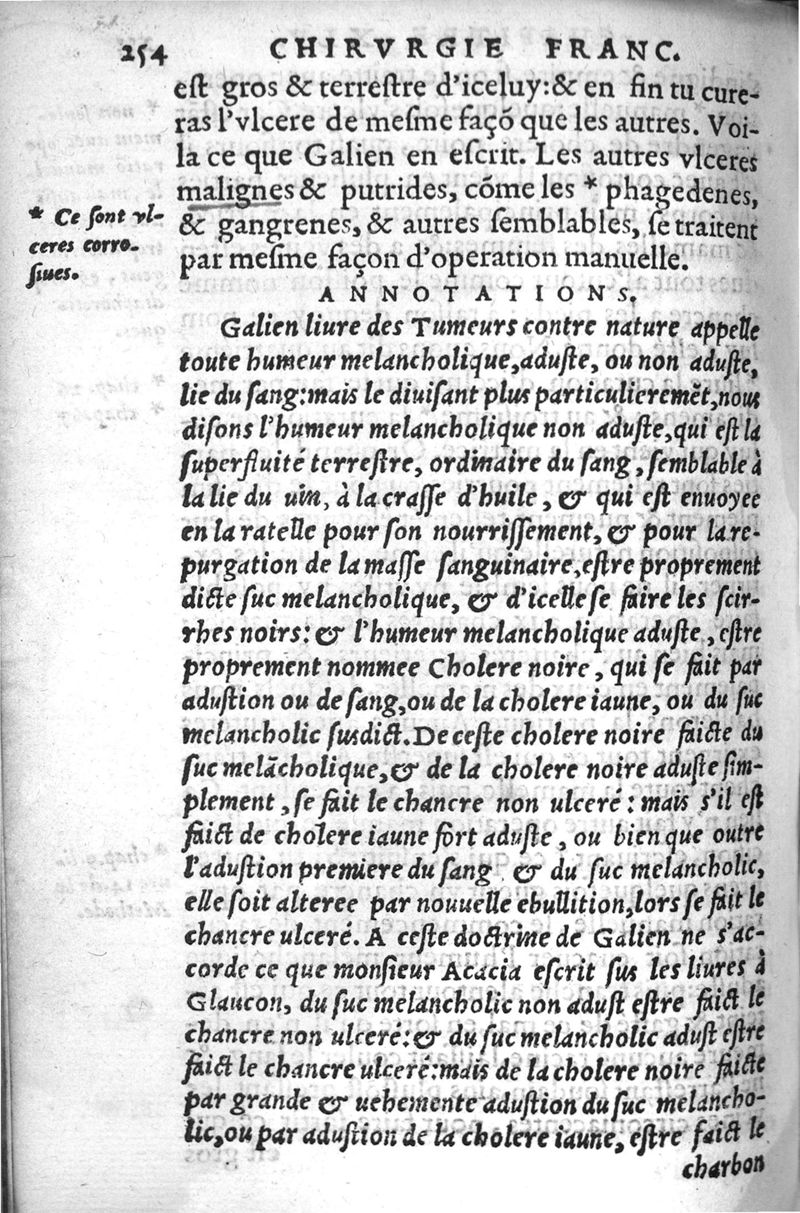 254 CHIRVRGIE FRANC.
est gros & terrestre d'iceluy:& en fin tu cure-
ras l'vlcere de mesme façõ que les autres. Voi-
la ce que Galien en escrit. Les autres vlceres
malignes & putrides, cõme les * phagedenes,
& gangrenes, & autres semblables, se traitent
par mesme façon d'operation manuelle.
* Ce sont vl-
ceres corro-
siues.
ANNOTATIONS.
Galien liure des Tumeurs contre nature appelle
toute humeur melancholique,aduste, ou non aduste,
lie du sang:mais le diuisant plus particulieremẽt,nous
disons l'humeur melancholique non aduste,qui est la
superfluité terrestre, ordinaire du sang, semblable à
la lie du uin, à la crasse d'huile, & qui est enuoyee
en la ratelle pour son nourrissement, & pour la re-
purgation de la masse sanguinaire,estre proprement
dicte suc melancholique, & d'icelle se faire les scir-
rhes noirs: & l'humeur melancholique aduste, estre
proprement nommee Cholere noire, qui se fait par
adustion ou de sang,ou de la cholere iaune, ou du suc
melancholic susdict. De ceste cholere noire faicte du
suc melãcholique,& de la cholere noire aduste sim-
plement, se fait le chancre non ulceré: mais s'il est
faict de cholere iaune fort aduste, ou bien que outre
l'adustion premiere du sang & du suc melancholic,
elle soit alteree par nouuelle ebullition,lors se fait le
chancre ulceré. A ceste doctrine de Galien ne s'ac-
corde ce que monsieur Acacia escrit sus les liures à
Glaucon, du suc melancholic non adust estre faict le
chancre non ulceré: & du suc melancholic adust estre
faict le chancre ulceré:mais de la cholere noire faicte
par grande & uehemente adustion du suc melancho-
lic,ou par adustion de la cholere iaune, estre faict le
charbon